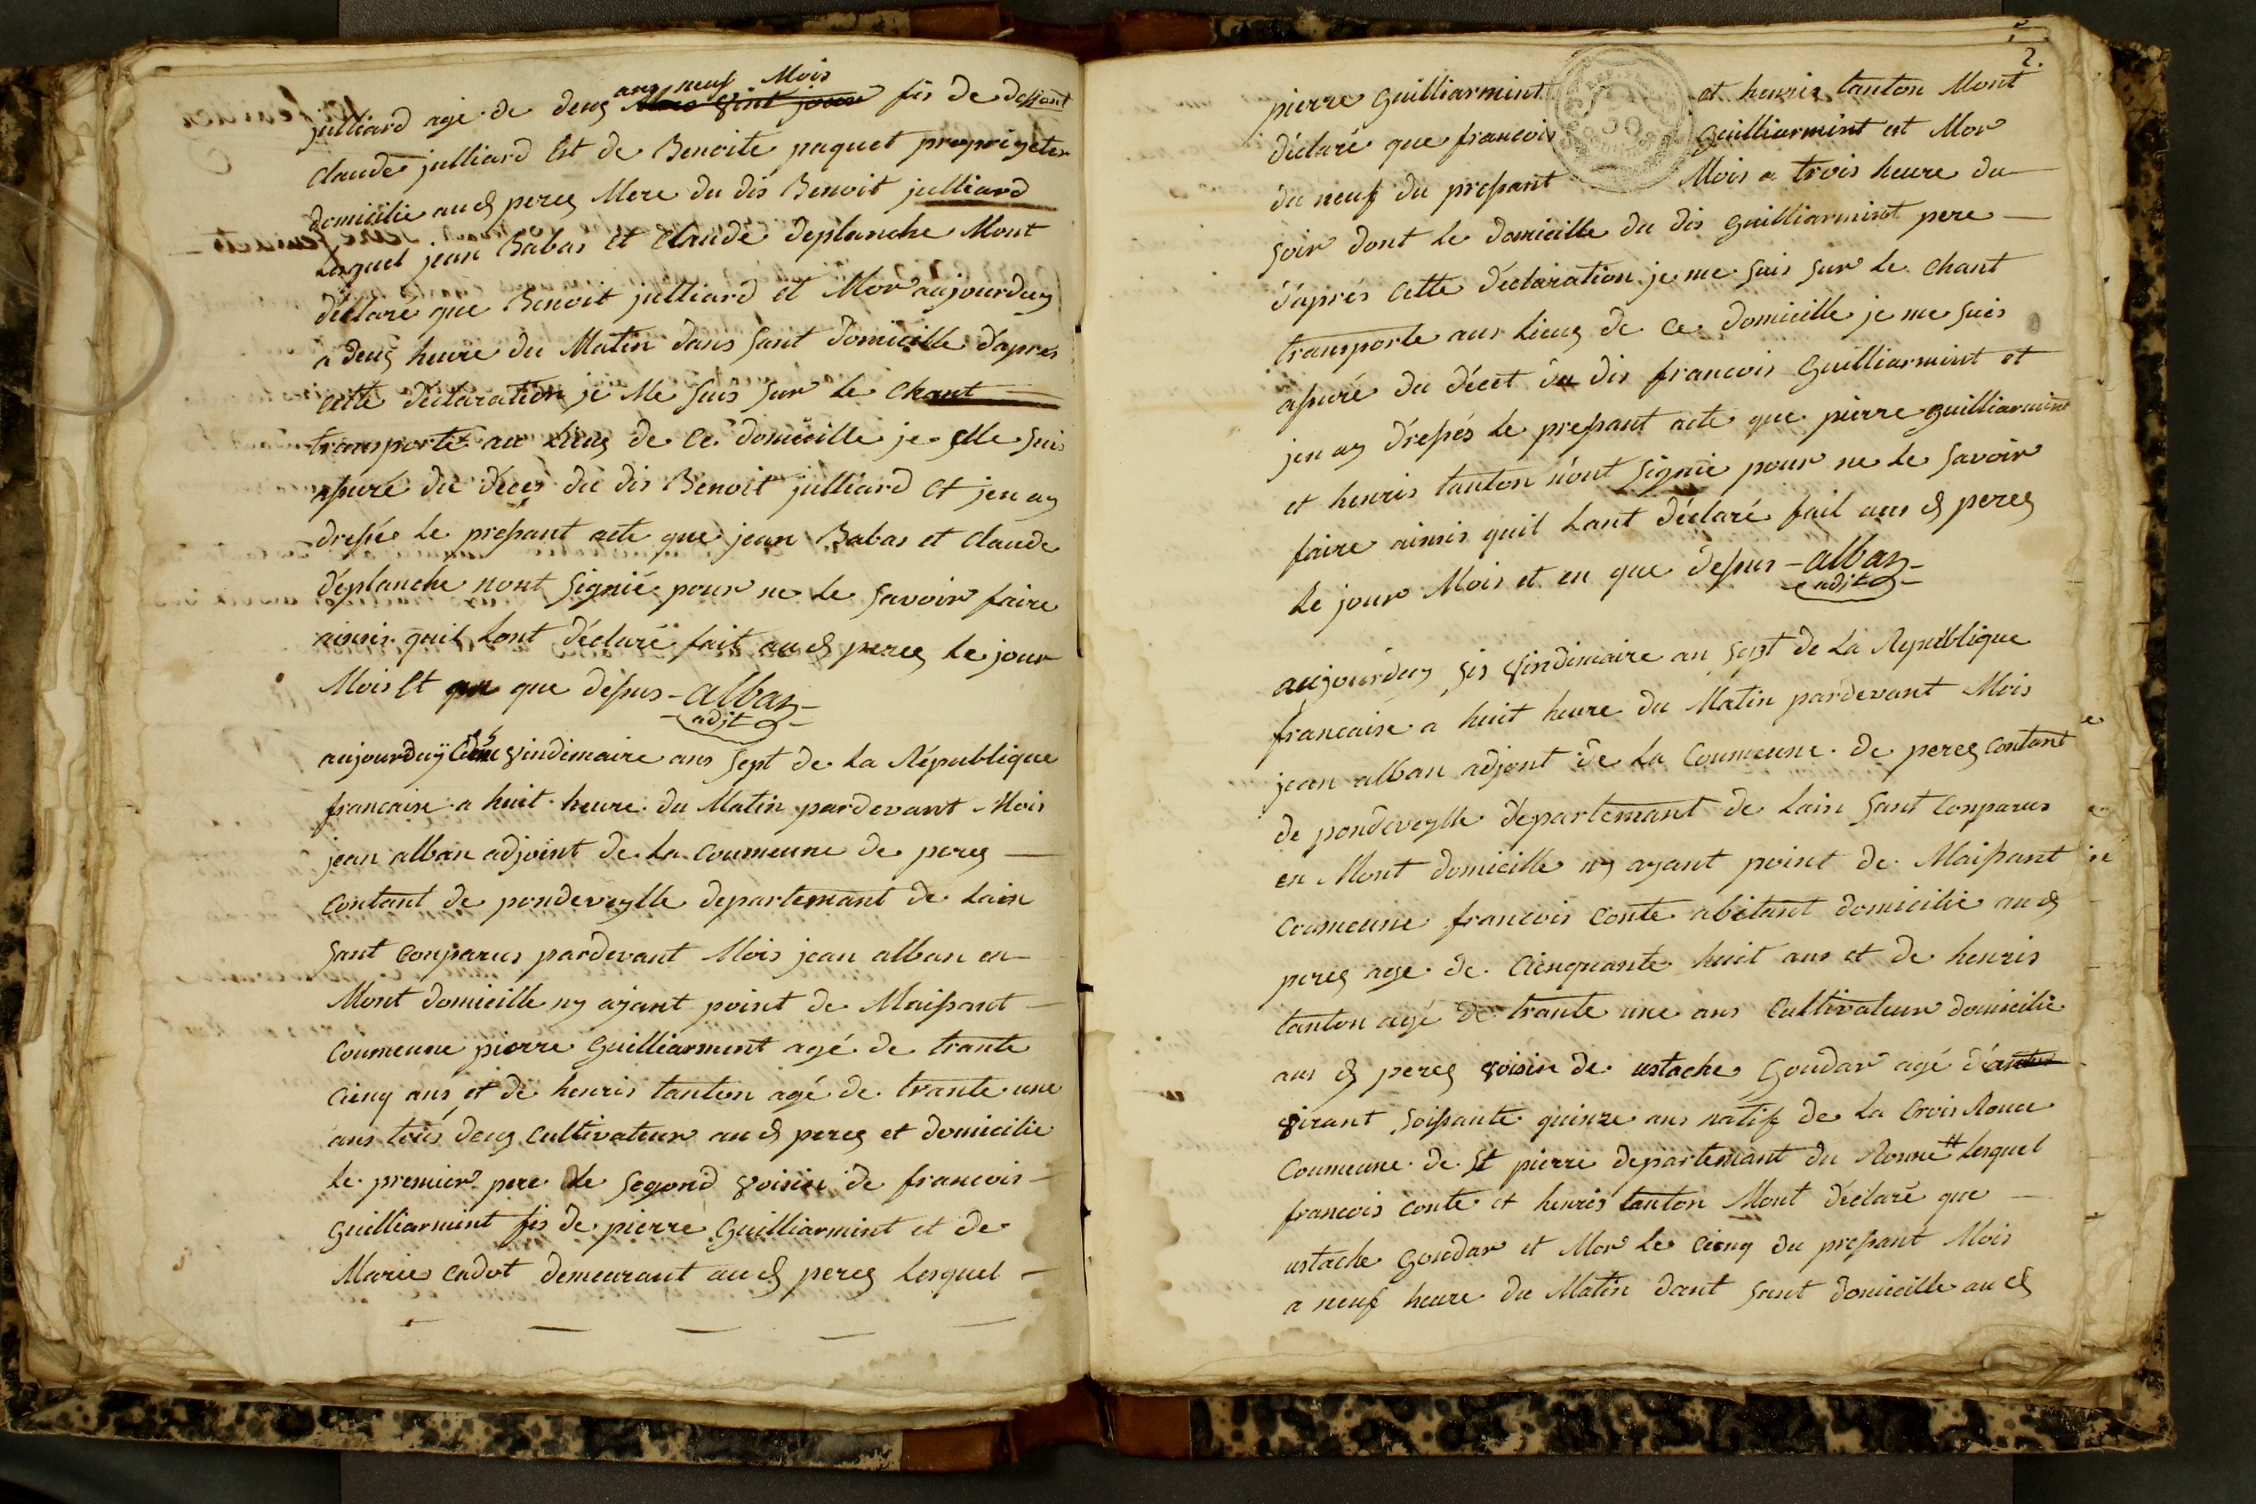 julliard agé de deuz ans neuf Mois fis de defient
claude julliard Et de Benoite paquet proprigeter
domicilie au d perez Mere du dis Benoit julliard
Lesquel jean Babas et Claude deplanche Mont
déclare que Benoit julliard et Mor aujourduy
a deuz heure du Matin dans sant domicille dapres
cette déclaration je Me suis sur le chant
transporté au Lieuz de Ce domicille je Me suis
assuré du déces du dis Benoit julliard et jen ay
dressé le pressant acte que jean Babas et claude
déplanche nont signié pour ne le savoir faire
ainsis quil Lont déclaré fait au d perez le jour
Mois Et que dessus - alban
adjt
aujourduy vindimaire ans sept de La République
francaise a huit heure du Matin pardevant Mois
jean alban adjoint de La coumeune de perez
contant de pondeveylle departemant de Lain
sant conparus pardevant Mois jean alban en
Mont domicille ny ajant point de Maissant
coumeune pierre Guilliarmint agé de trante
cienq ans et de henris tanton agé de trante une
ans tous deuz cultivateur au d perez et domicilie
Le premier pere Le segond voisin de francois
Guilliarmint fis de pierre Guilliarmint et de
Marie cadot demeurant au d perez Lesquel
2.
pierre Guilliarmint et henris tanton Mont
déclaré que francois Guilliarmint est Mor
du neuf du pressant Mois a trois heure du
soir dont Le domicille du dis Guilliarmint pere
dáprés cette déclaration je me suis sur Le chant
transporte aus Lieuz de Ce domicille je me suis
assuré du décet du dis francois Guilliarmint et
jen ay dressés Le pressant acte que pierre guilliarmint
et henris tanton nont signié pour ne Le savoir
faire ainsis quil Lant déclaré fait aus d perez
Le jour Mois et en que dessus - alban
adjt
aujourduy sis vindimaire an sept de La République
francaise a huit heure du Matin pardevant Mois
jean alban adjont de La Coumeune de perez contant
de pondeveylle départemant de Lain sant Conparus
en Mont domicille ny ayant point de Maissant
coumeune francois conte abitant domicilie au d
perez age de cienquante huit ans et de henris
tanton agé de trante une ans Cultivateur domicilie
aus d perez voisin de ustache Goudar agé d
virant soissante quinze ans natif de La Crois Rouce
Coumeune de St pierre departemant du Ronne # Lesquel
francois conte et henris tanton Mont déclaré que
ustache Goudar et Mor Le cienq du pressant Mois
a neuf heure du Matin dant sant domicille au d